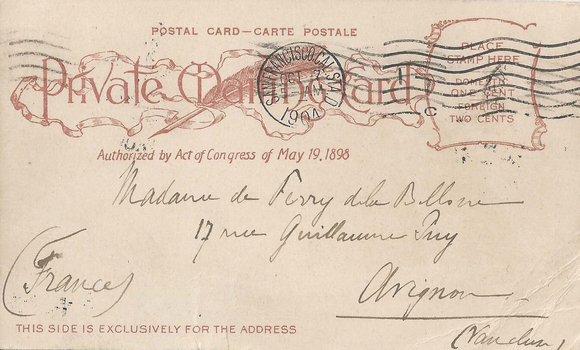 POSTAL CARD—CARTE POSTALE
Private Mailing Card
Authorized by Act of Congress of May 19, 1898
SAN FRANCISCO, CAL. STA. D
OCT 7
AM
1904
PLACE
STAMP HERE
DOMESTIC
ONE CENT
FOREIGN
TWO CENTS
C
Madame de Ferry de la Bellone
17 rue Guillaume Puy
(France)
Avignon
(Vaucluse)
THIS SIDE IS EXCLUSIVELY FOR THE ADDRESS